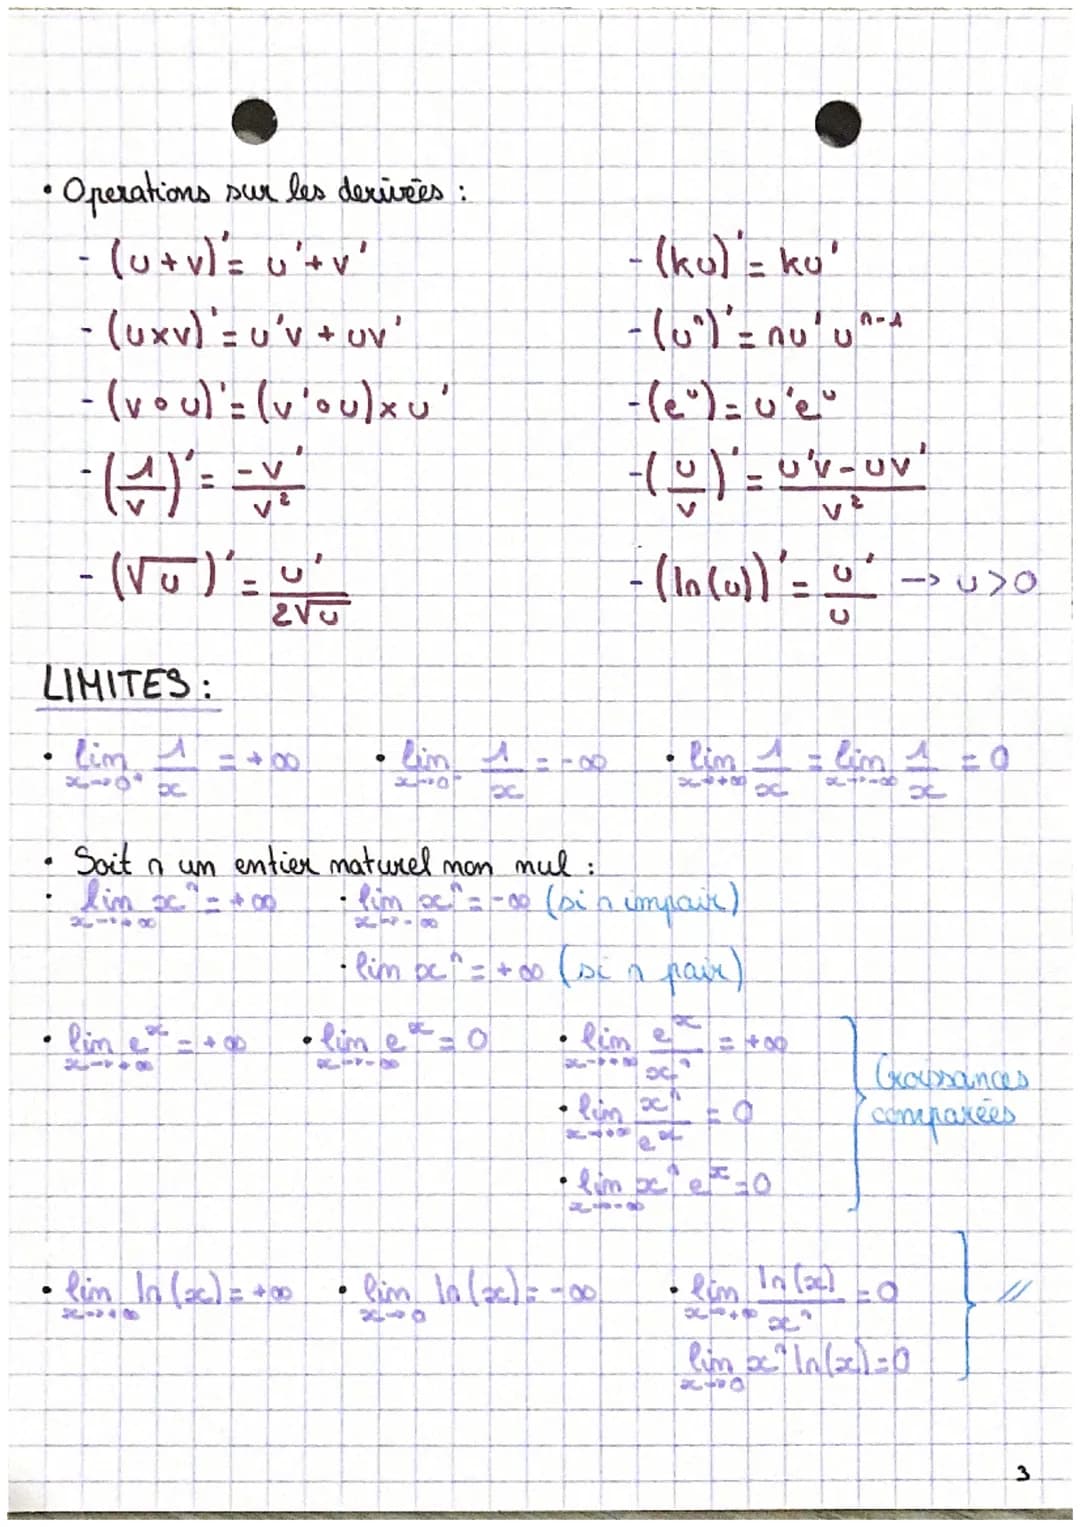 • Operations sur les derivées :
- (u+v)' = u'+v' - (ku)' = ku'
- (u×v)' = u'v + uv' - (uⁿ)' = nu'uⁿ⁻¹
- (v∘u)' = (v'∘u)×u' - (eᵘ) = u'eᵘ
- (1/v)' = -v'/v² - (u/v)' = u'v-uv'/v²
- (√u)' = u'/2√u - (ln(u))' = u'/u → u>0
LIMITES :
• lim x→0⁺ 1/x = +∞ • lim x→0⁻ 1/x = -∞ • lim x→+∞ 1/x = lim x→-∞ 1/x = 0
• Soit n un entier naturel non nul :
• lim x→+∞ xⁿ = +∞ • lim x→-∞ xⁿ = -∞ (si n impair)
• lim xⁿ = +∞ (si n pair)
• lim x→+∞ eˣ = +∞ • lim x→-∞ eˣ = 0 • lim x→+∞ eˣ/xⁿ = +∞
Croissances
• lim x→+∞ xⁿ/eˣ = 0
comparées
• lim x→-∞ xⁿeˣ = 0
• lim x→+∞ ln(x) = +∞ • lim x→0 ln(x) = -∞ • lim x→+∞ ln(x)/xⁿ = 0 //
lim x→0 xⁿ ln(x) = 0
3